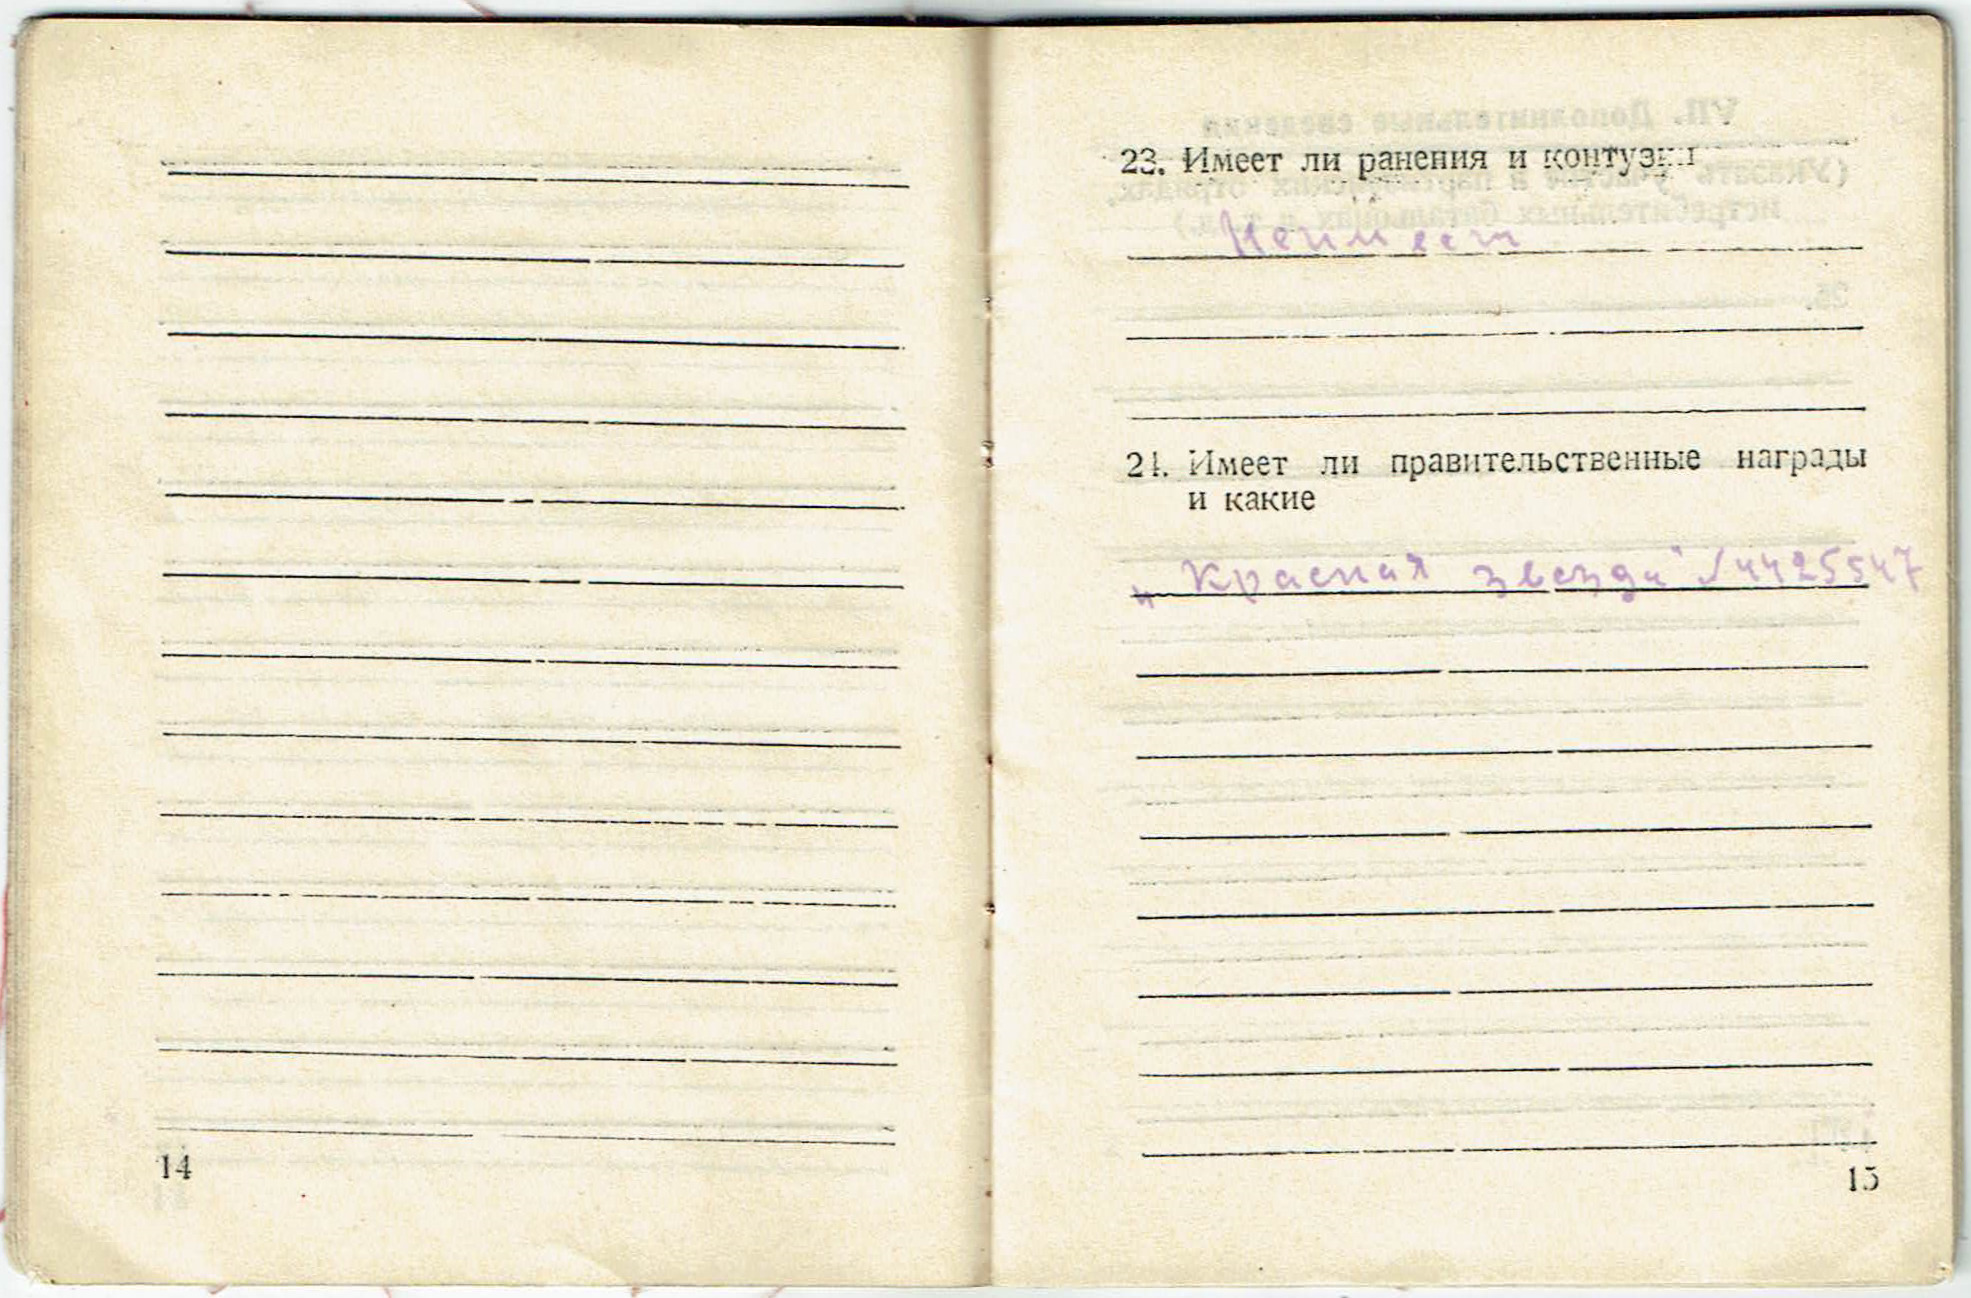 14
23. Имеет ли ранения и контузии
Неимеет
24. Имеет ли правительственные награды
и какие
„Красная звезда"
15